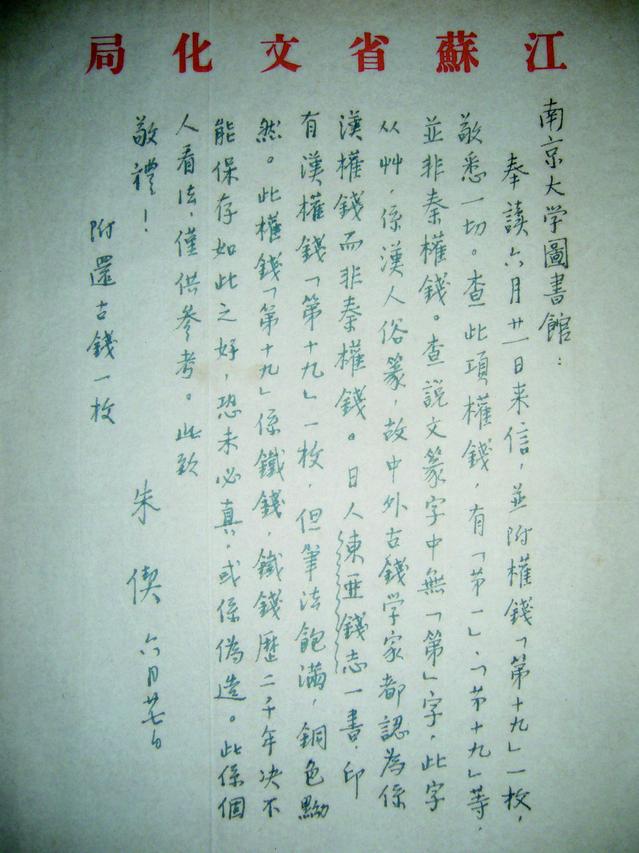 江蘇省文化局
南京大学圖書館：
奉讀六月廿一日来信，並附權錢「第十九」一枚，
敬悉一切。查此項權錢，有「苐一」、「苐十九」等，
並非秦權錢。查說文篆字中無「第」字，此字
从艸，係漢人俗篆，故中外古錢学家都認為係
漢權錢而非秦權錢。日人東亜錢志一書，印
有漢權錢「第十九」一枚，但筆法飽滿，銅色黝
然。此權錢「第十九」係鐵錢，鐵錢歷二千年决不
能保存如此之好，恐未必真，或係偽造。此係個
人看法，僅供參考。此致
敬禮！
附還古錢一枚
朱偰 六月廿七日